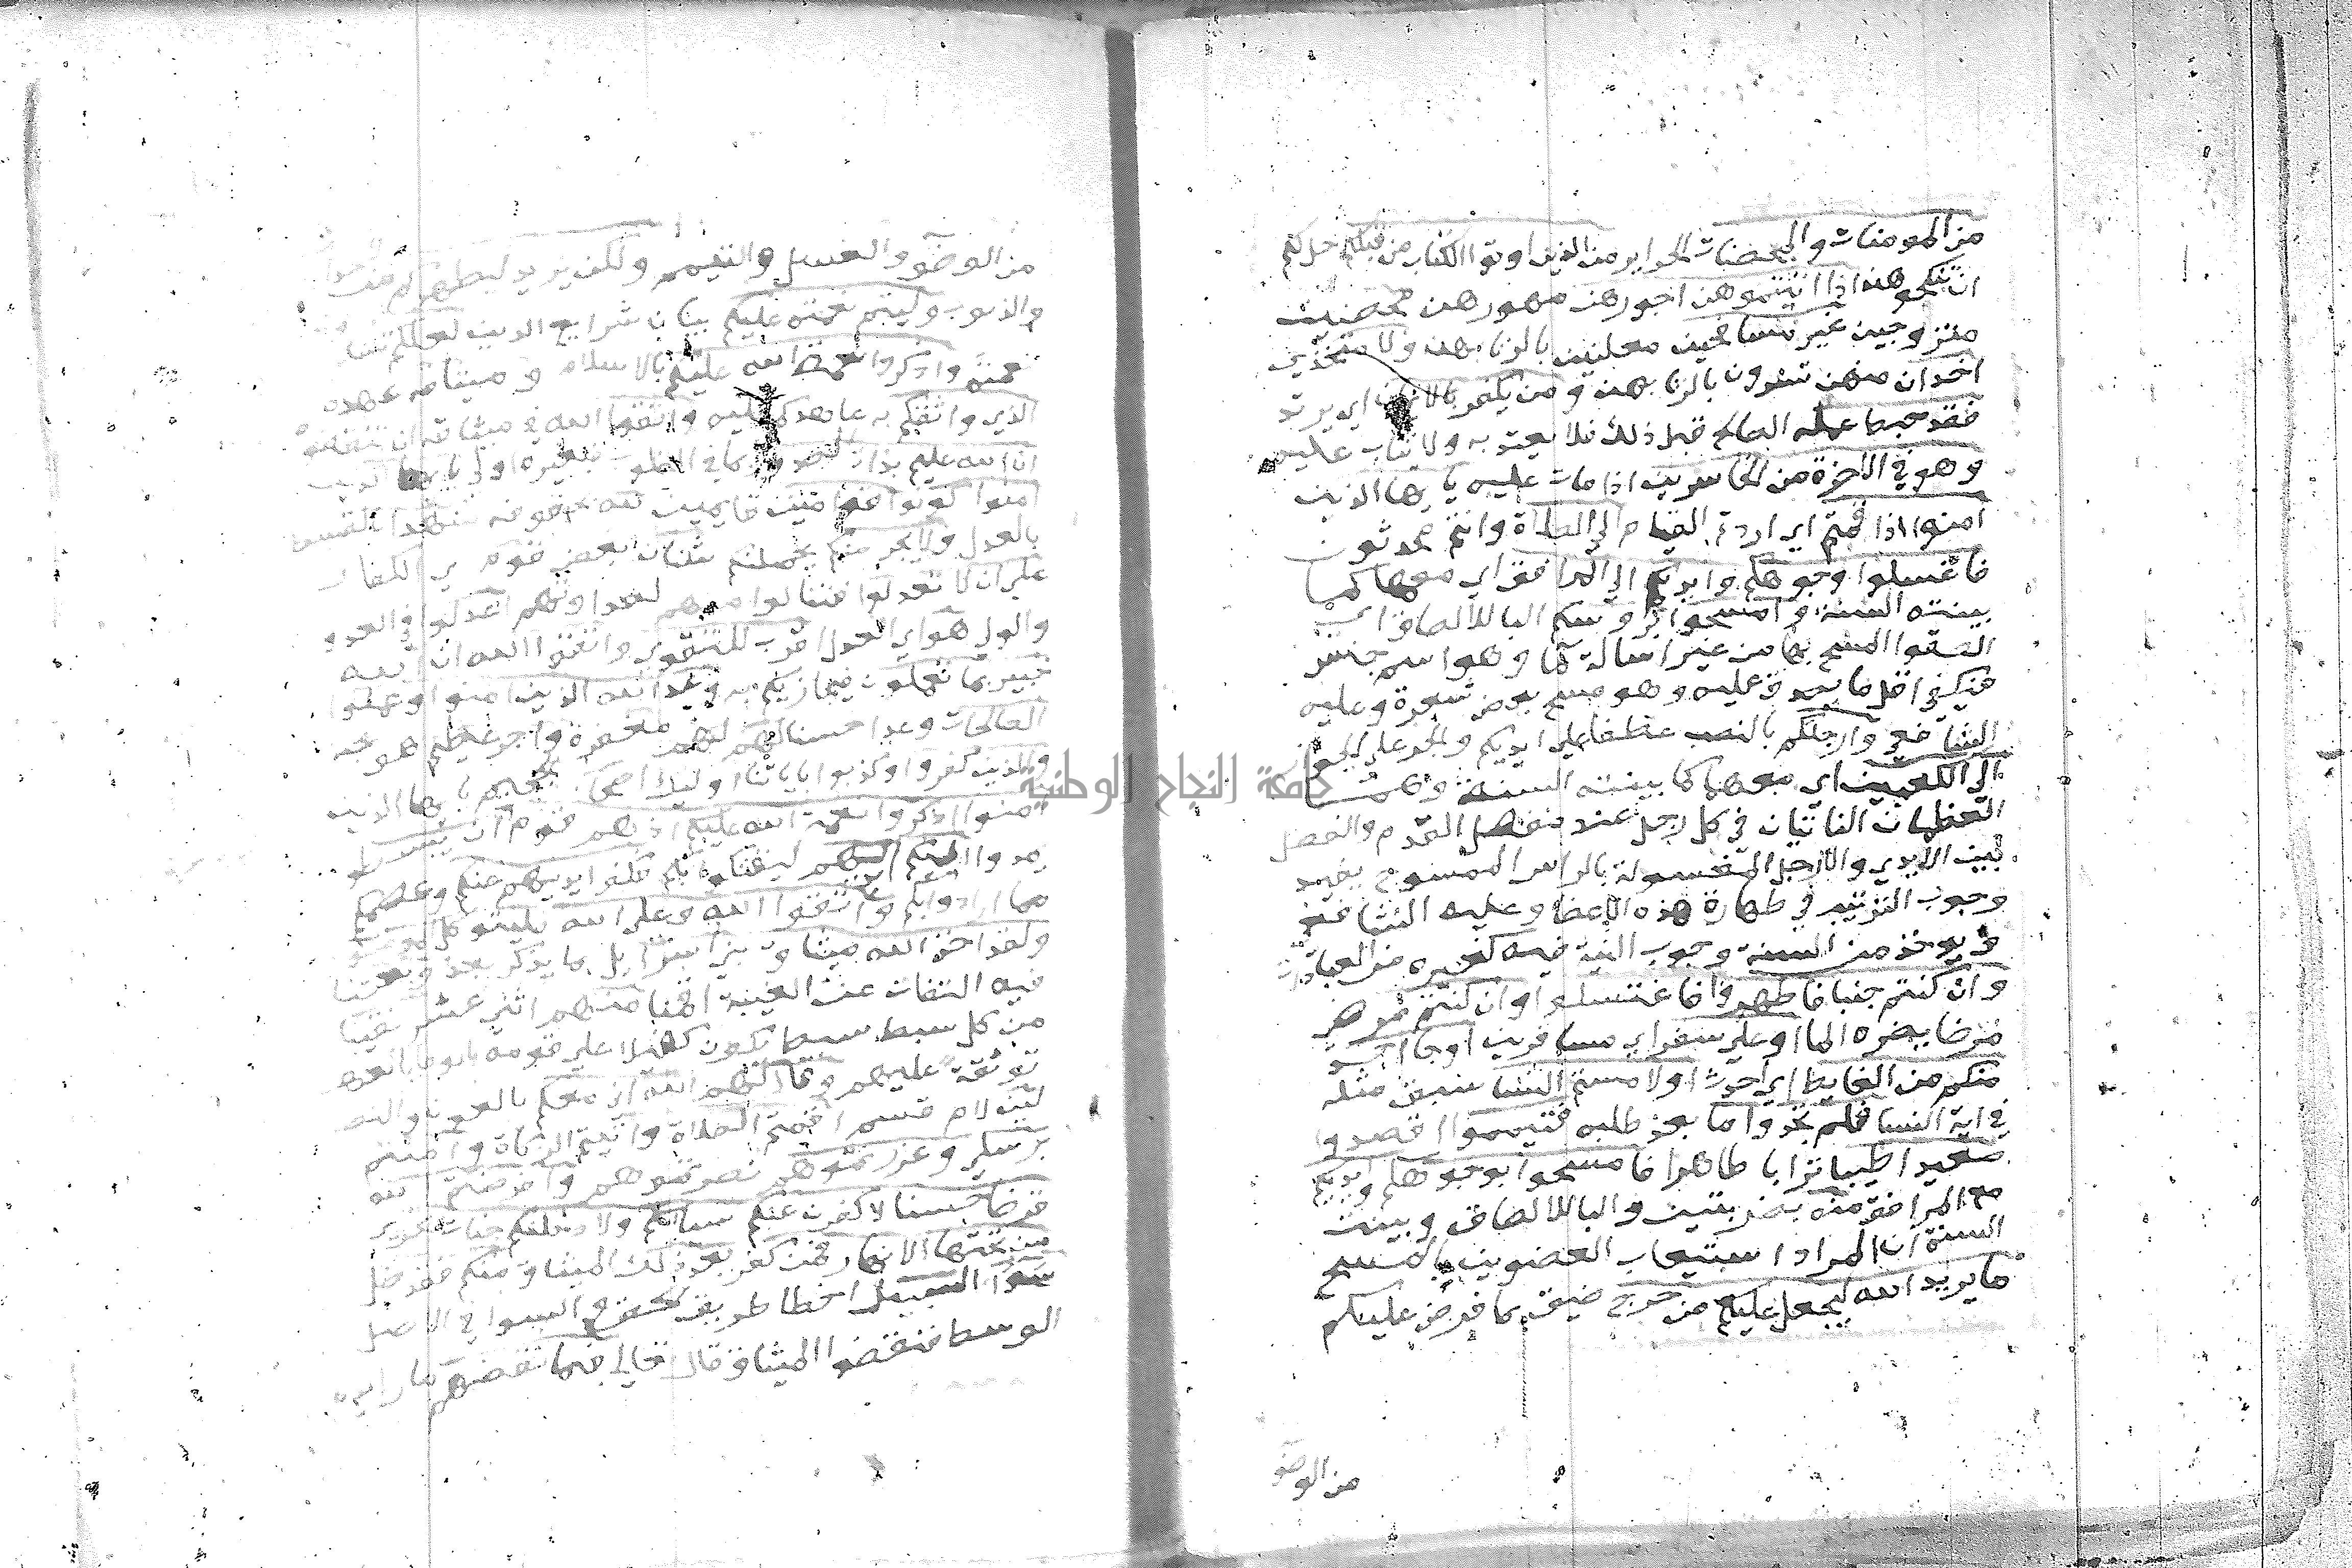 من المومنات والمحصنات الحراير من الذين اوتوا الكتاب من قبلكم حل لكم
ان تنكحوهن اذا اتيتموهن اجورهن مهورهن محصنين
متزوجين غير مسافحين معلنين بالزنا بهن ولا متخذي
اخدان منهن تسرون بالزنا بهن ومن يكفر بالايمان اي يرتد
فقد حبط عمله الصالح قبل ذلك فلا يعتد به ولا يثاب عليه
وهو في الاخرة من الخاسرين اذا مات عليه يا يها الذين
امنوا اذا قمتم اي اردتم القيام الي الصلاة وانتم محدثون
فاغسلوا وجوهكم وايديكم الي المرافق اي معها كما
بينته السنة وامسحوا بروسكم البا للالصاق اي
الصقوا المسح بها من غير اسالة ما وهو اسم جنس
فيكفي اقل ما يصدق عليه وهو مسح بعض شعرة وعليه
الشافعي وارجلكم بالنصب عطفا علي ايديكم والجر علي الجوار
الي الكعبين اي معهما كما بينته السنة وهما
العظمان الناتيان في كل رجل عند مفصل القدم والفصل
بين الايدي والارجل المغسولة بالراس الممسوح يفيد
وجوب الترتيب في طهارة هذه الاعضا وعليه الشافعي
ويوخذ من السنة وجوب النية فيه كغيره من العبادات
وان كنتم جنبا فاطهروا فاغتسلوا وان كنتم مرضي
مرضا يضره الما او علي سفر اي مسافرين او جا احد
منكم من الغايط اي احدث او لامستم النسا سبق مثله
في اية النسا فلم تجدوا ما بعد طلبه فتيمموا اقصدوا
صعيدا طيبا ترابا طاهرا فامسحوا بوجوهكم وايديكم
مع المرافق منه بضربتين والبا للالصاق وبينت
السنة ان المراد استيعاب العضوين بالمسح
ما يريد الله ليجعل عليكم من حرج ضيق بما فرض عليكم
من الوضو
من الوضو والغسل والتيمم ولكن يريد ليطهركم من
والذنوب وليتم نعمته عليكم ببيان شرايع الدين لعلكم
نعمته واذكروا نعمة الله عليكم بالاسلام وميثاقه عهده
الذي واثقكم به عاهدكم عليه واتقوا الله في ميثاقه ان تنقضوه
ان الله عليم بذات الصدور بما في القلوب فبغيره اولي يا يها الذين
امنوا كونوا قوامين قايمين لله بحقوقه شهدا بالقسط
بالعدل ولا يجرمنكم يحملنكم شنان بغض قوم اي الكفار
علي ان لا تعدلوا فتنالوا منهم لعداوتهم اعدلوا في العدو
والولي هو اي العدل اقرب للتقوي واتقوا الله ان الله
خبير بما تعملون فيجازيكم به وعد الله الذين امنوا وعملوا
الصالحات وعدا حسنا لهم مغفرة واجر عظيم هو الجنة
والذين كفروا وكذبوا باياتنا اوليك اصحاب الجحيم يا يها الذين
امنوا اذكروا نعمة الله عليكم اذ هم قوم ان يبسطوا
يمدوا اليكم ايديهم ليفتكوا بكم فكف ايديهم عنكم وعصمكم
مما ارادوا بكم واتقوا الله وعلي الله فليتوكل المومنون
ولقد اخذ الله ميثاق بني اسرايل بما يذكر بعد وبعثنا
فيه التفات عن الغيبة اقمنا منهم اثني عشر نقيبا
من كل سبط سبط يكون كفيلا علي قومه بالوفا بالعهد
توثقة عليهم وقال لهم الله اني معكم بالعون والنصر
لين لام قسم اقمتم الصلاة واتيتم الزكاة وامنتم
برسلي وعزرتموهم نصرتموهم واقرضتم الله
قرضا حسنا لاكفرن عنكم سياتكم ولادخلنكم جنات تجري
من تحتها الانهار فمن كفر بعد ذلك الميثاق منكم فقد ضل
سوا السبيل اخطا طريق الحق والسوا في الاصل
الوسط فنقضوا الميثاق قال تعالي فبما نقضهم ما زايدة
جامعة النجاح الوطنية